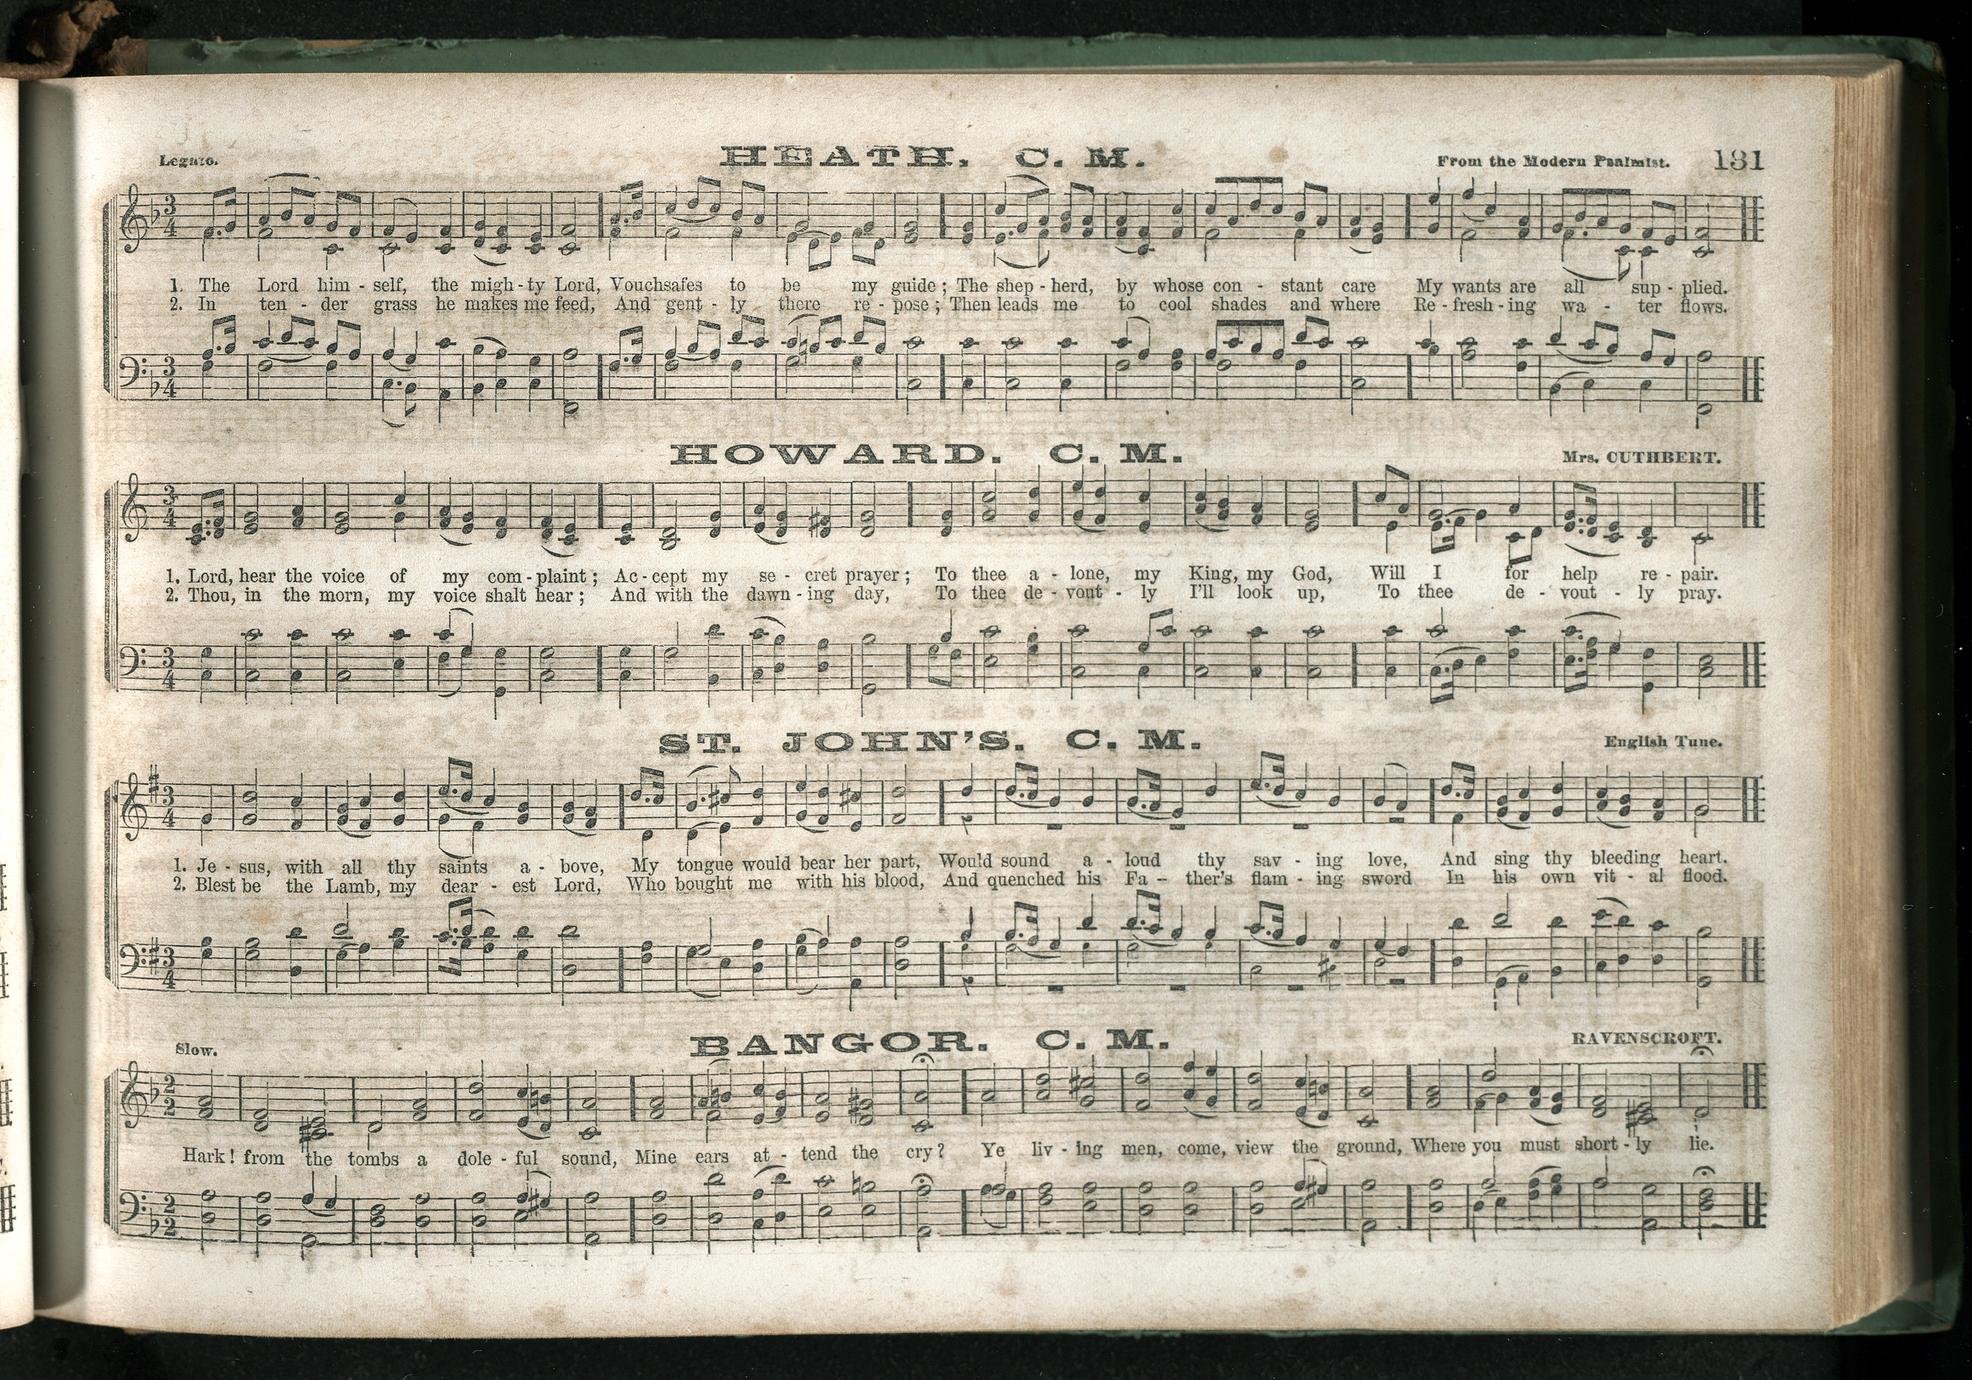 Legato.
HEATH. C. M.
From the Modern Psalmist. 131
1. The Lord him - self, the migh - ty Lord, Vouchsafes to be my guide ; The shep - herd, by whose con - stant care My wants are all sup - plied.
2. In ten - der grass he makes me feed, And gent - ly there re - pose ; Then leads me to cool shades and where Re - fresh - ing wa - ter flows.
HOWARD. C. M.
Mrs. CUTHBERT.
1. Lord, hear the voice of my com - plaint ; Ac - cept my se - cret prayer ; To thee a - lone, my King, my God, Will I for help re - pair.
2. Thou, in the morn, my voice shalt hear ; And with the dawn - ing day, To thee de - vout - ly I'll look up, To thee de - vout - ly pray.
ST. JOHN'S. C. M.
English Tune.
1. Je - sus, with all thy saints a - bove, My tongue would bear her part, Would sound a - loud thy sav - ing love, And sing thy bleeding heart.
2. Blest be the Lamb, my dear - est Lord, Who bought me with his blood, And quenched his Fa - ther's flam - ing sword In his own vit - al flood.
Slow.
BANGOR. C. M.
RAVENSCROFT.
Hark ! from the tombs a dole - ful sound, Mine ears at - tend the cry ? Ye liv - ing men, come, view the ground, Where you must short - ly lie.